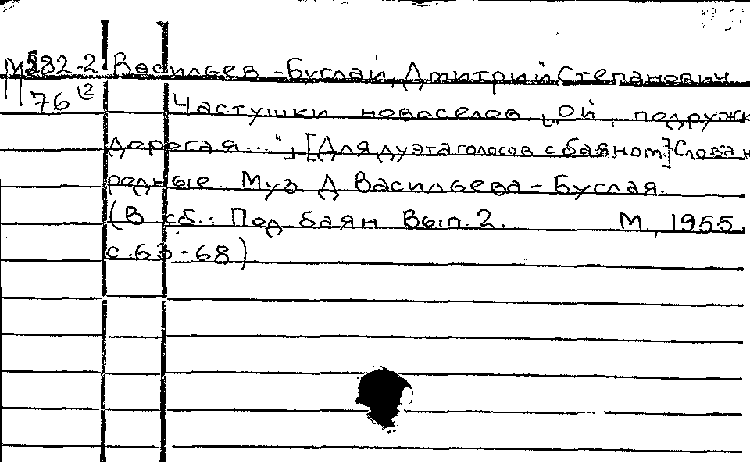 М582-2 Васильев-Буслай, Дмитрий Степанович.
76 Частушки новоселов „Ой, подружк
дорогая..." [Для дуэта голосов с баяном] Слова н
родные Муз Д Васильева-Буслая.
(В сб.: Под баян Вып. 2. М, 1955.
с. 63-68)